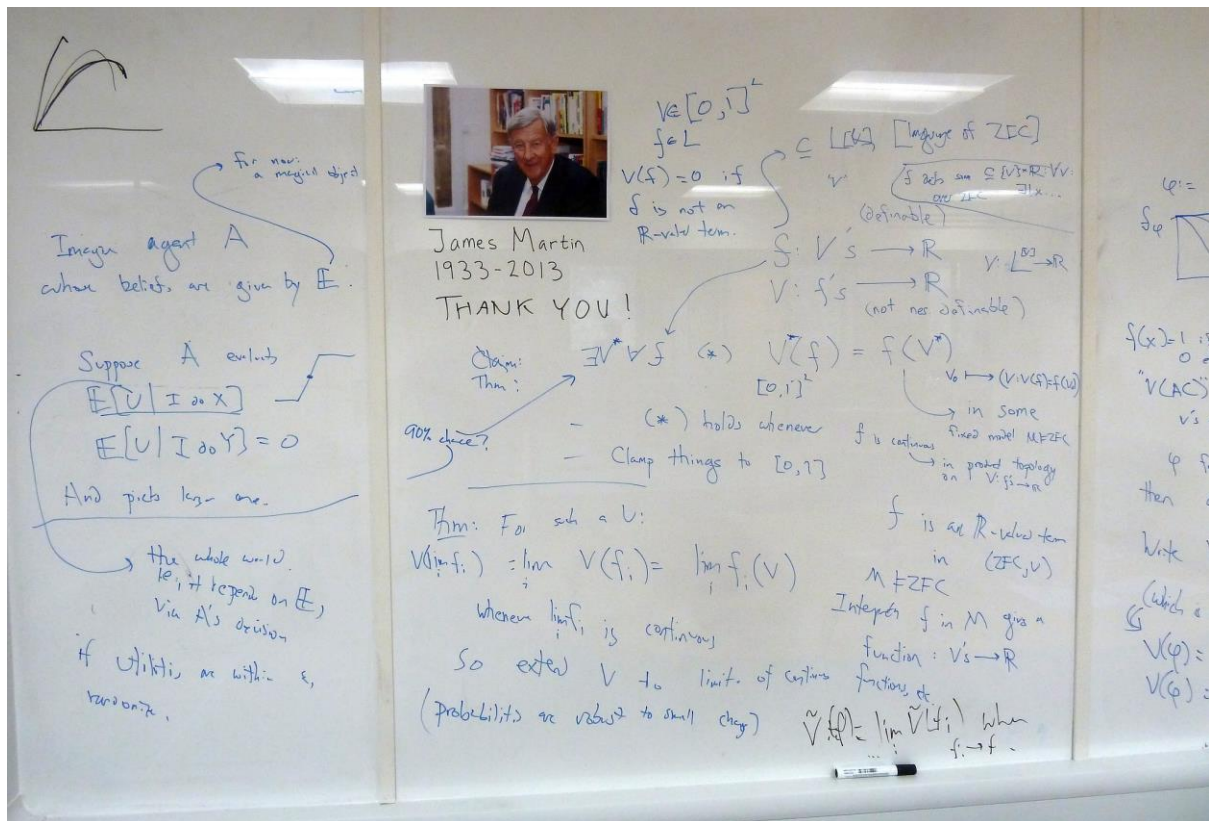 for now:
a magical object
Imagine agent A
whose beliefs are given by 𝔼:
Suppose A evaluates
𝔼[U | I do X]
𝔼[U | I do Y] = 0
And picks larger one.
the whole world.
ie, it depends on 𝔼,
via A's decision
if utilities are within ε,
randomize.
James Martin
1933-2013
THANK YOU!
V∈[0,1]^L
f∈L
V(f)=0 if
f is not an
ℝ-valued term.
⊆ L[V] [language of ZFC]
(definable)
f: V's → ℝ
V: f's → ℝ
(not nec. definable)
Claim:
Thm:
∃V* ∀f (*) V*(f) = f(V*)
[0,1]^L
90% chance?
- (*) holds whenever
- Clamp things to [0,1]
V₀ ↦ (V: V(f)=f(V₀))
in some
fixed model M⊨ZFC
f is continuous
in product topology
on V: f's → ℝ
Thm: For such a V:
V(lim f_i) = lim_i V(f_i) = lim_i f_i(V)
whenever lim_i f_i is continuous
So extend V to limits of continuous functions, etc
(probabilities are robust to small changes)
f is an ℝ-valued term
in (ZFC, V)
M⊨ZFC
Interpreting f in M gives a
function: V's → ℝ
Ṽ(f) = lim_i Ṽ(f_i) when
f_i → f.
φ:=
f_φ
f(x)=1
0
"V(AC)"
V's
φ
then
Write
(which
V(φ)=
V(φ)